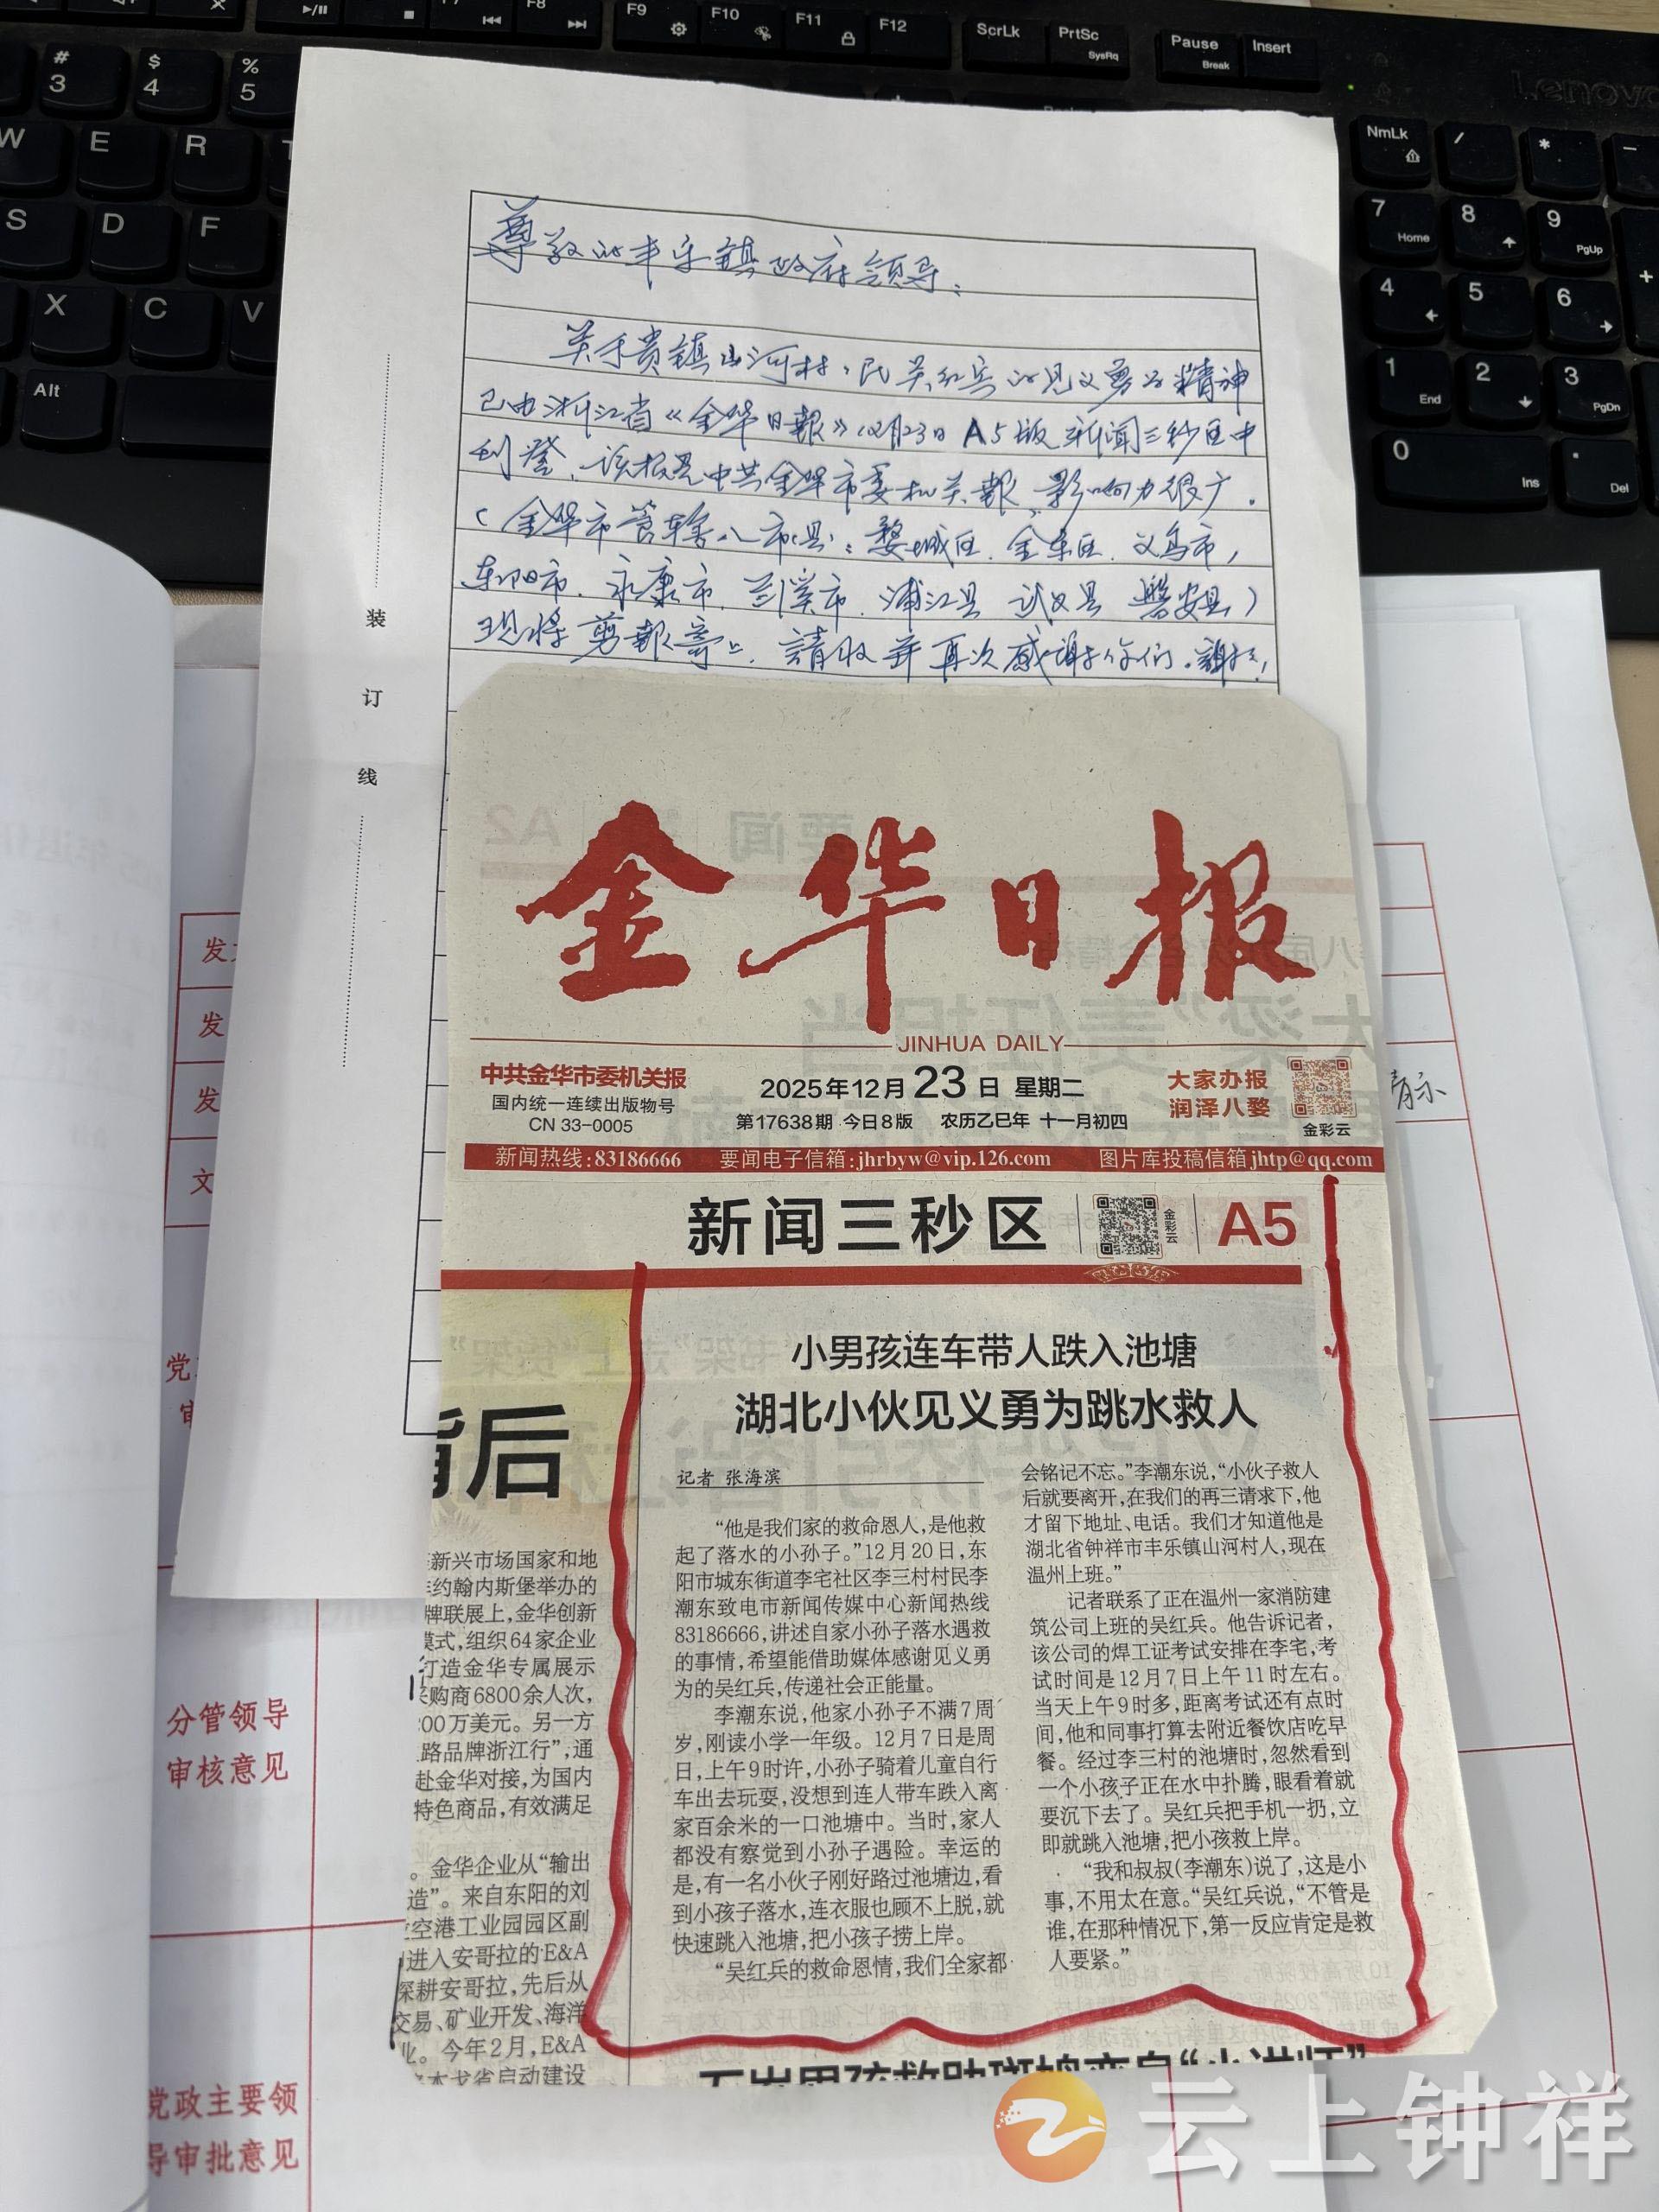 尊敬的丰乐镇政府领导：
关于贵镇山河村村民吴红兵的见义勇为精神
已由浙江省《金华日報》12月23日A5版新闻三秒区中
刊登，该报是中共金华市委机关報，影响力很广。
（金华市管辖八市县：婺城区、金东区、义乌市，
东阳市、永康市、兰溪市、浦江县 武义县 磐安县）
现将剪報寄上，請收并再次感謝你们。謝謝！
装
订
线
金华日报
JINHUA DAILY
中共金华市委机关报
国内统一连续出版物号
CN 33-0005
2025年12月23日 星期二
第17638期 今日8版 农历乙巳年 十一月初四
大家办报
润泽八婺
金彩云
新闻热线:83186666 要闻电子信箱:jhrbyw@vip.126.com 图片库投稿信箱jhtp@qq.com
新闻三秒区
金彩云
A5
小男孩连车带人跌入池塘
湖北小伙见义勇为跳水救人
记者 张海滨
“他是我们家的救命恩人，是他救
起了落水的小孙子。”12月20日，东
阳市城东街道李宅社区李三村村民李
潮东致电市新闻传媒中心新闻热线
83186666，讲述自家小孙子落水遇救
的事情，希望能借助媒体感谢见义勇
为的吴红兵，传递社会正能量。
李潮东说，他家小孙子不满7周
岁，刚读小学一年级。12月7日是周
日，上午9时许，小孙子骑着儿童自行
车出去玩耍，没想到连人带车跌入离
家百余米的一口池塘中。当时，家人
都没有察觉到小孙子遇险。幸运的
是，有一名小伙子刚好路过池塘边，看
到小孩子落水，连衣服也顾不上脱，就
快速跳入池塘，把小孩子捞上岸。
“吴红兵的救命恩情，我们全家都
会铭记不忘。”李潮东说，“小伙子救人
后就要离开，在我们的再三请求下，他
才留下地址、电话。我们才知道他是
湖北省钟祥市丰乐镇山河村人，现在
温州上班。”
记者联系了正在温州一家消防建
筑公司上班的吴红兵。他告诉记者，
该公司的焊工证考试安排在李宅，考
试时间是12月7日上午11时左右。
当天上午9时多，距离考试还有点时
间，他和同事打算去附近餐饮店吃早
餐。经过李三村的池塘时，忽然看到
一个小孩子正在水中扑腾，眼看着就
要沉下去了。吴红兵把手机一扔，立
即就跳入池塘，把小孩救上岸。
“我和叔叔（李潮东）说了，这是小
事，不用太在意。“吴红兵说，“不管是
谁，在那种情况下，第一反应肯定是救
人要紧。”
背后
新兴市场国家和地
约翰内斯堡举办的
牌联展上，金华创新
模式，组织64家企业
打造金华专属展示
采购商6800余人次，
00万美元。另一方
路品牌浙江行”，通
赴金华对接，为国内
特色商品，有效满足
。金华企业从“输出
造”。来自东阳的刘
空港工业园园区副
进入安哥拉的E&A
深耕安哥拉，先后从
交易、矿业开发、海洋
业。今年2月，E&A
本戈省启动建设
发
发
发
文
党
审
分管领导
审核意见
党政主要领
导审批意见
云上钟祥